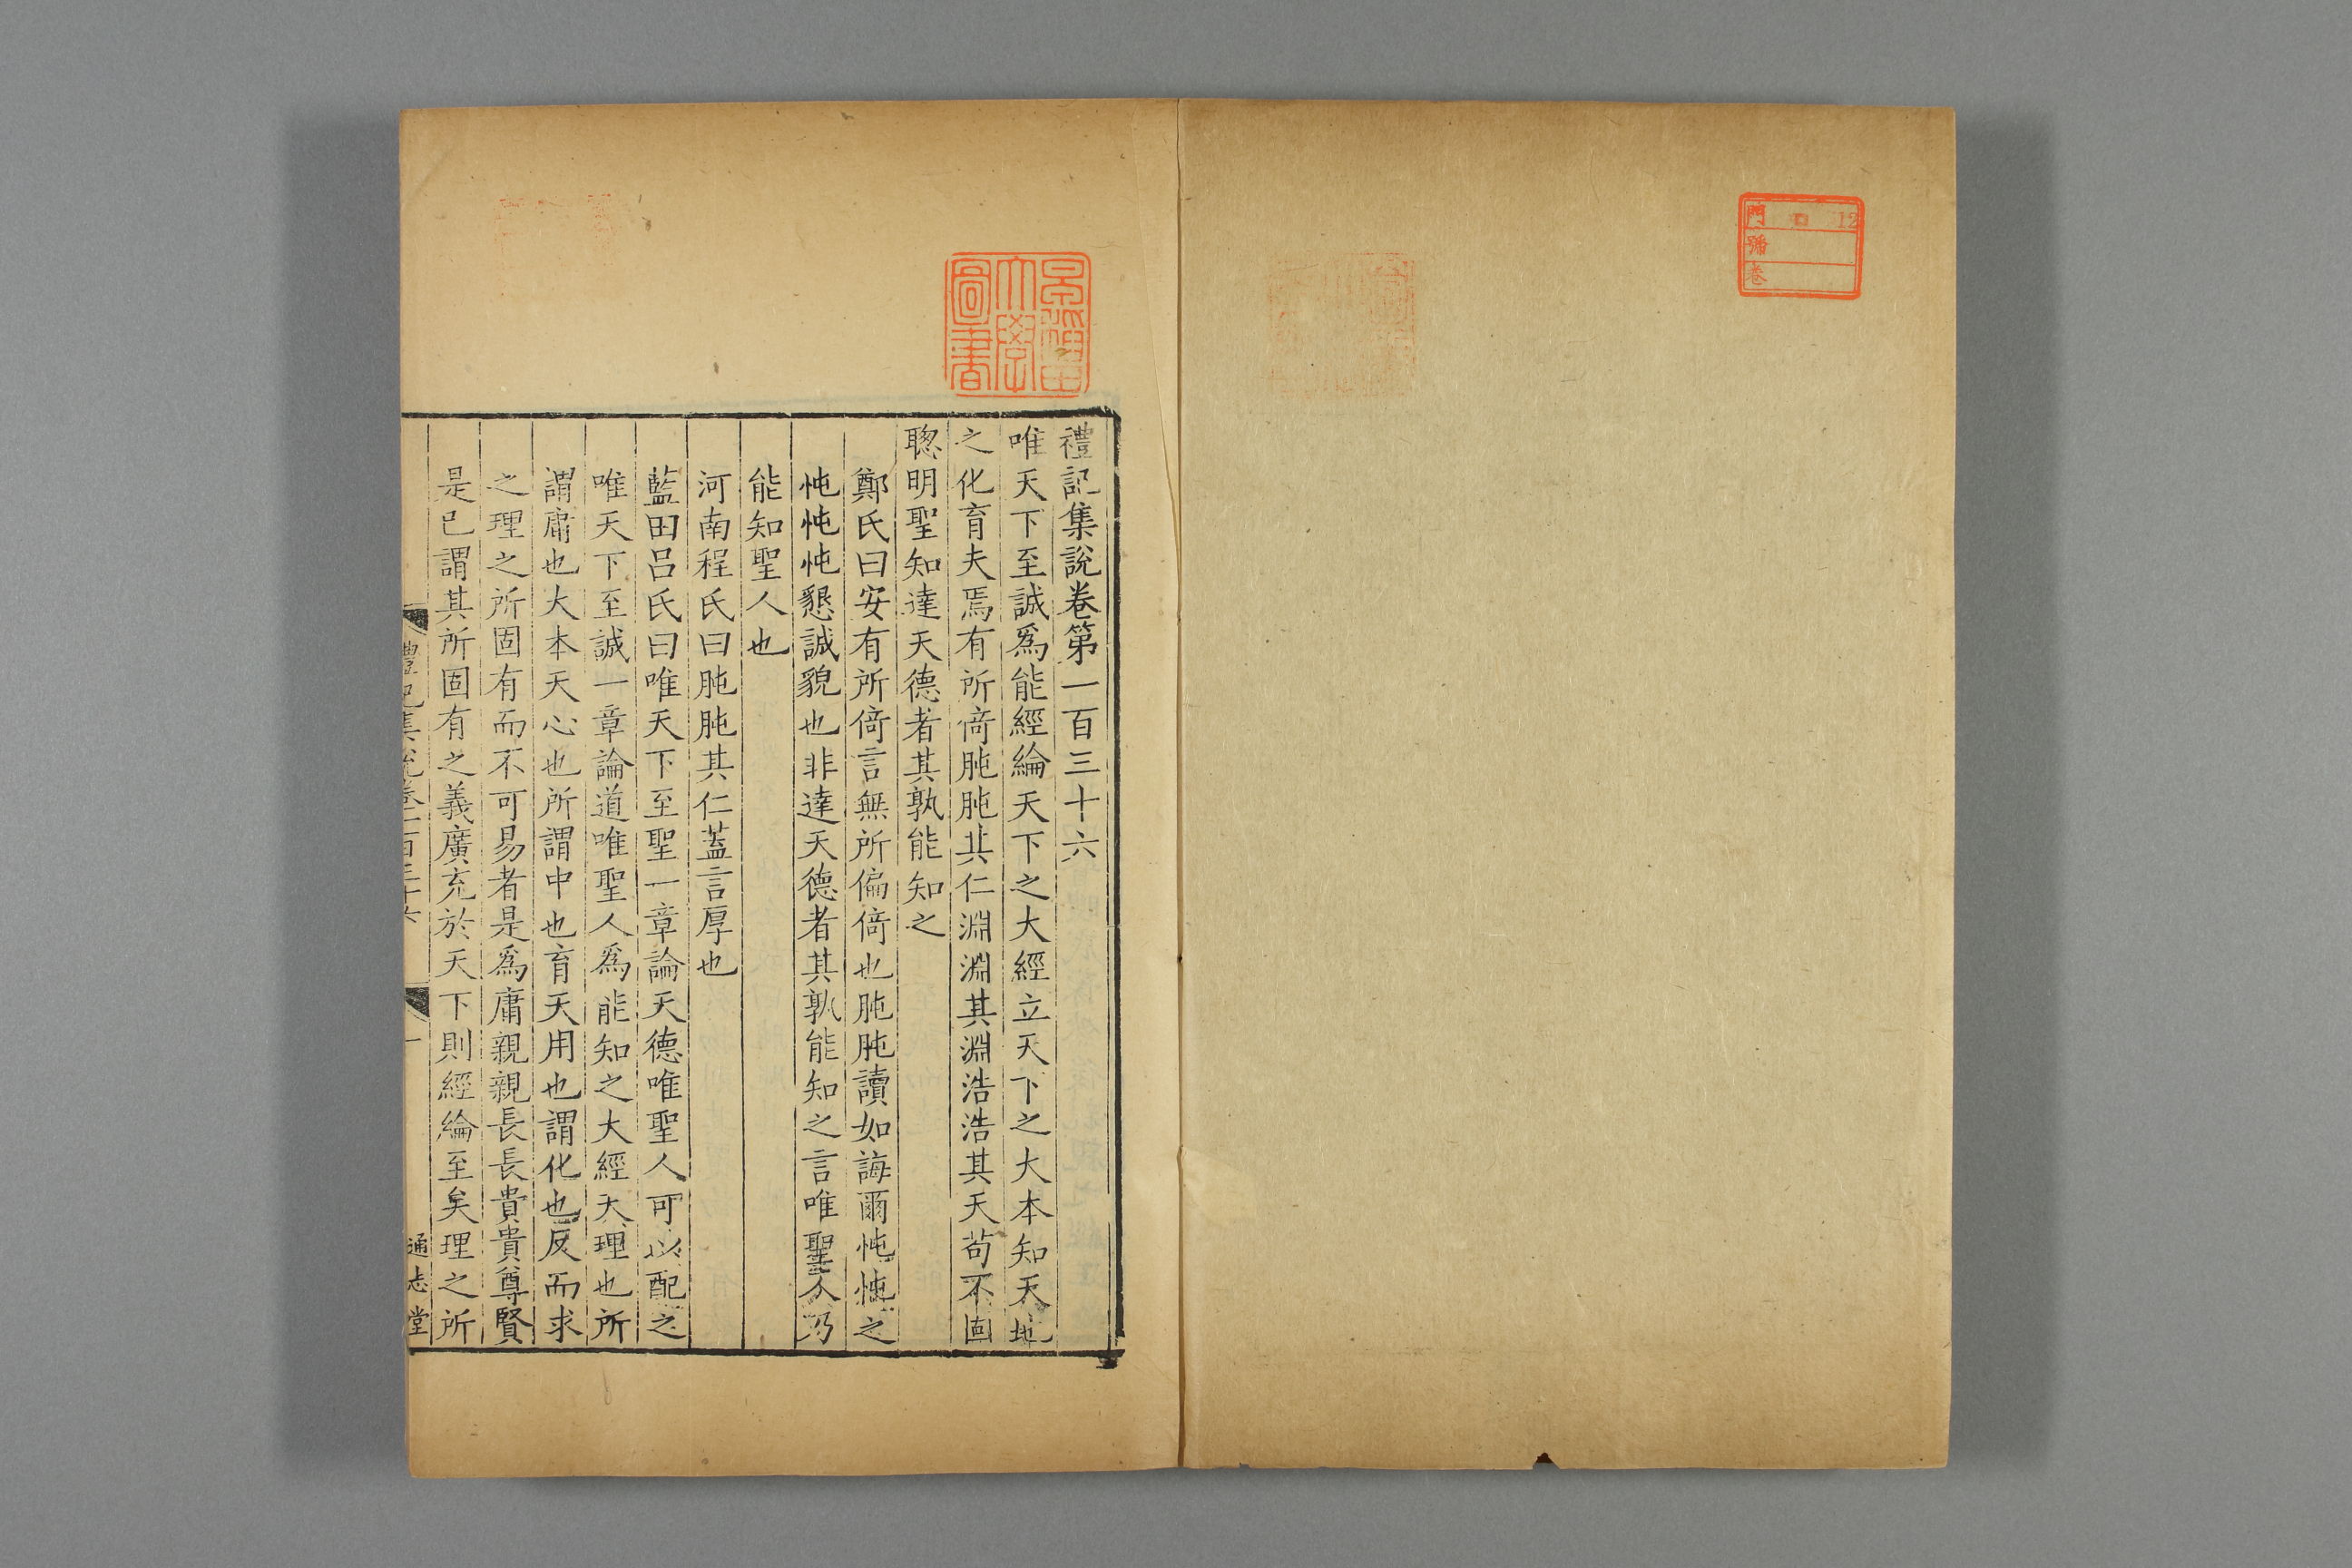 門 口 12
號
卷
早稲田
大學
圖書
禮記集說卷第一百三十六
唯天下至誠爲能經綸天下之大經立天下之大本知天地
之化育夫焉有所倚肫肫其仁淵淵其淵浩浩其天苟不固
聰明聖知達天德者其孰能知之
鄭氏曰安有所倚言無所偏倚也肫肫讀如誨爾忳忳之
忳忳忳懇誠貌也非達天德者其孰能知之言唯聖人乃
能知聖人也
河南程氏曰肫肫其仁蓋言厚也
藍田呂氏曰唯天下至聖一章論天德唯聖人可以配之
唯天下至誠一章論道唯聖人爲能知之大經天理也所
謂庸也大本天心也所謂中也育天用也謂化也反而求
之理之所固有而不可易者是爲庸親親長長貴貴尊賢
是已謂其所固有之義廣充於天下則經綸至矣理之所
禮記集說卷一百三十六 一 通志堂